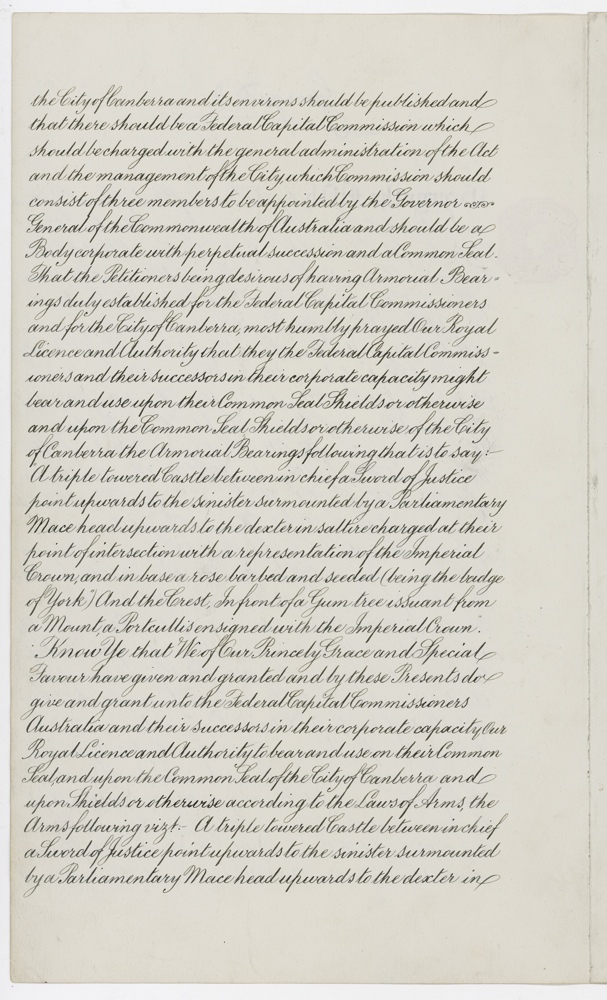 the City of Canberra and its environs should be published and
that there should be a Federal Capital Commission which
should be charged with the general administration of the Act
and the management of the City which Commission should
consist of three members to be appointed by the Governor
General of the Commonwealth of Australia and should be a
Body corporate with perpetual succession and a Common Seal.
That the Petitioners being desirous of having Armorial Bear-
ings duly established for the Federal Capital Commissioners
and for the City of Canberra, most humbly prayed Our Royal
Licence and Authority that they the Federal Capital Commiss-
ioners and their successors in their corporate capacity might
bear and use upon their Common Seal Shields or otherwise
and upon the Common Seal Shields or otherwise of the City
of Canberra the Armorial Bearings following that is to say:-
A triple towered Castle between in chief a Sword of Justice
point upwards to the sinister surmounted by a Parliamentary
Mace head upwards to the dexter in saltire charged at their
point of intersection with a representation of the Imperial
Crown, and in base a rose barbed and seeded (being the badge
of York") And the Crest, In front of a Gum tree issuant from
a Mount, a Portcullis ensigned with the Imperial Crown".
Know Ye that We of Our Princely Grace and Special
Favour have given and granted and by these Presents do
give and grant unto the Federal Capital Commissioners
Australia and their successors in their corporate capacity Our
Royal Licence and Authority to bear and use on their Common
Seal, and upon the Common Seal of the City of Canberra and
upon Shields or otherwise according to the Laws of Arms, the
Arms following vizt:- A triple towered Castle between in chief
a Sword of Justice point upwards to the sinister surmounted
by a Parliamentary Mace head upwards to the dexter in